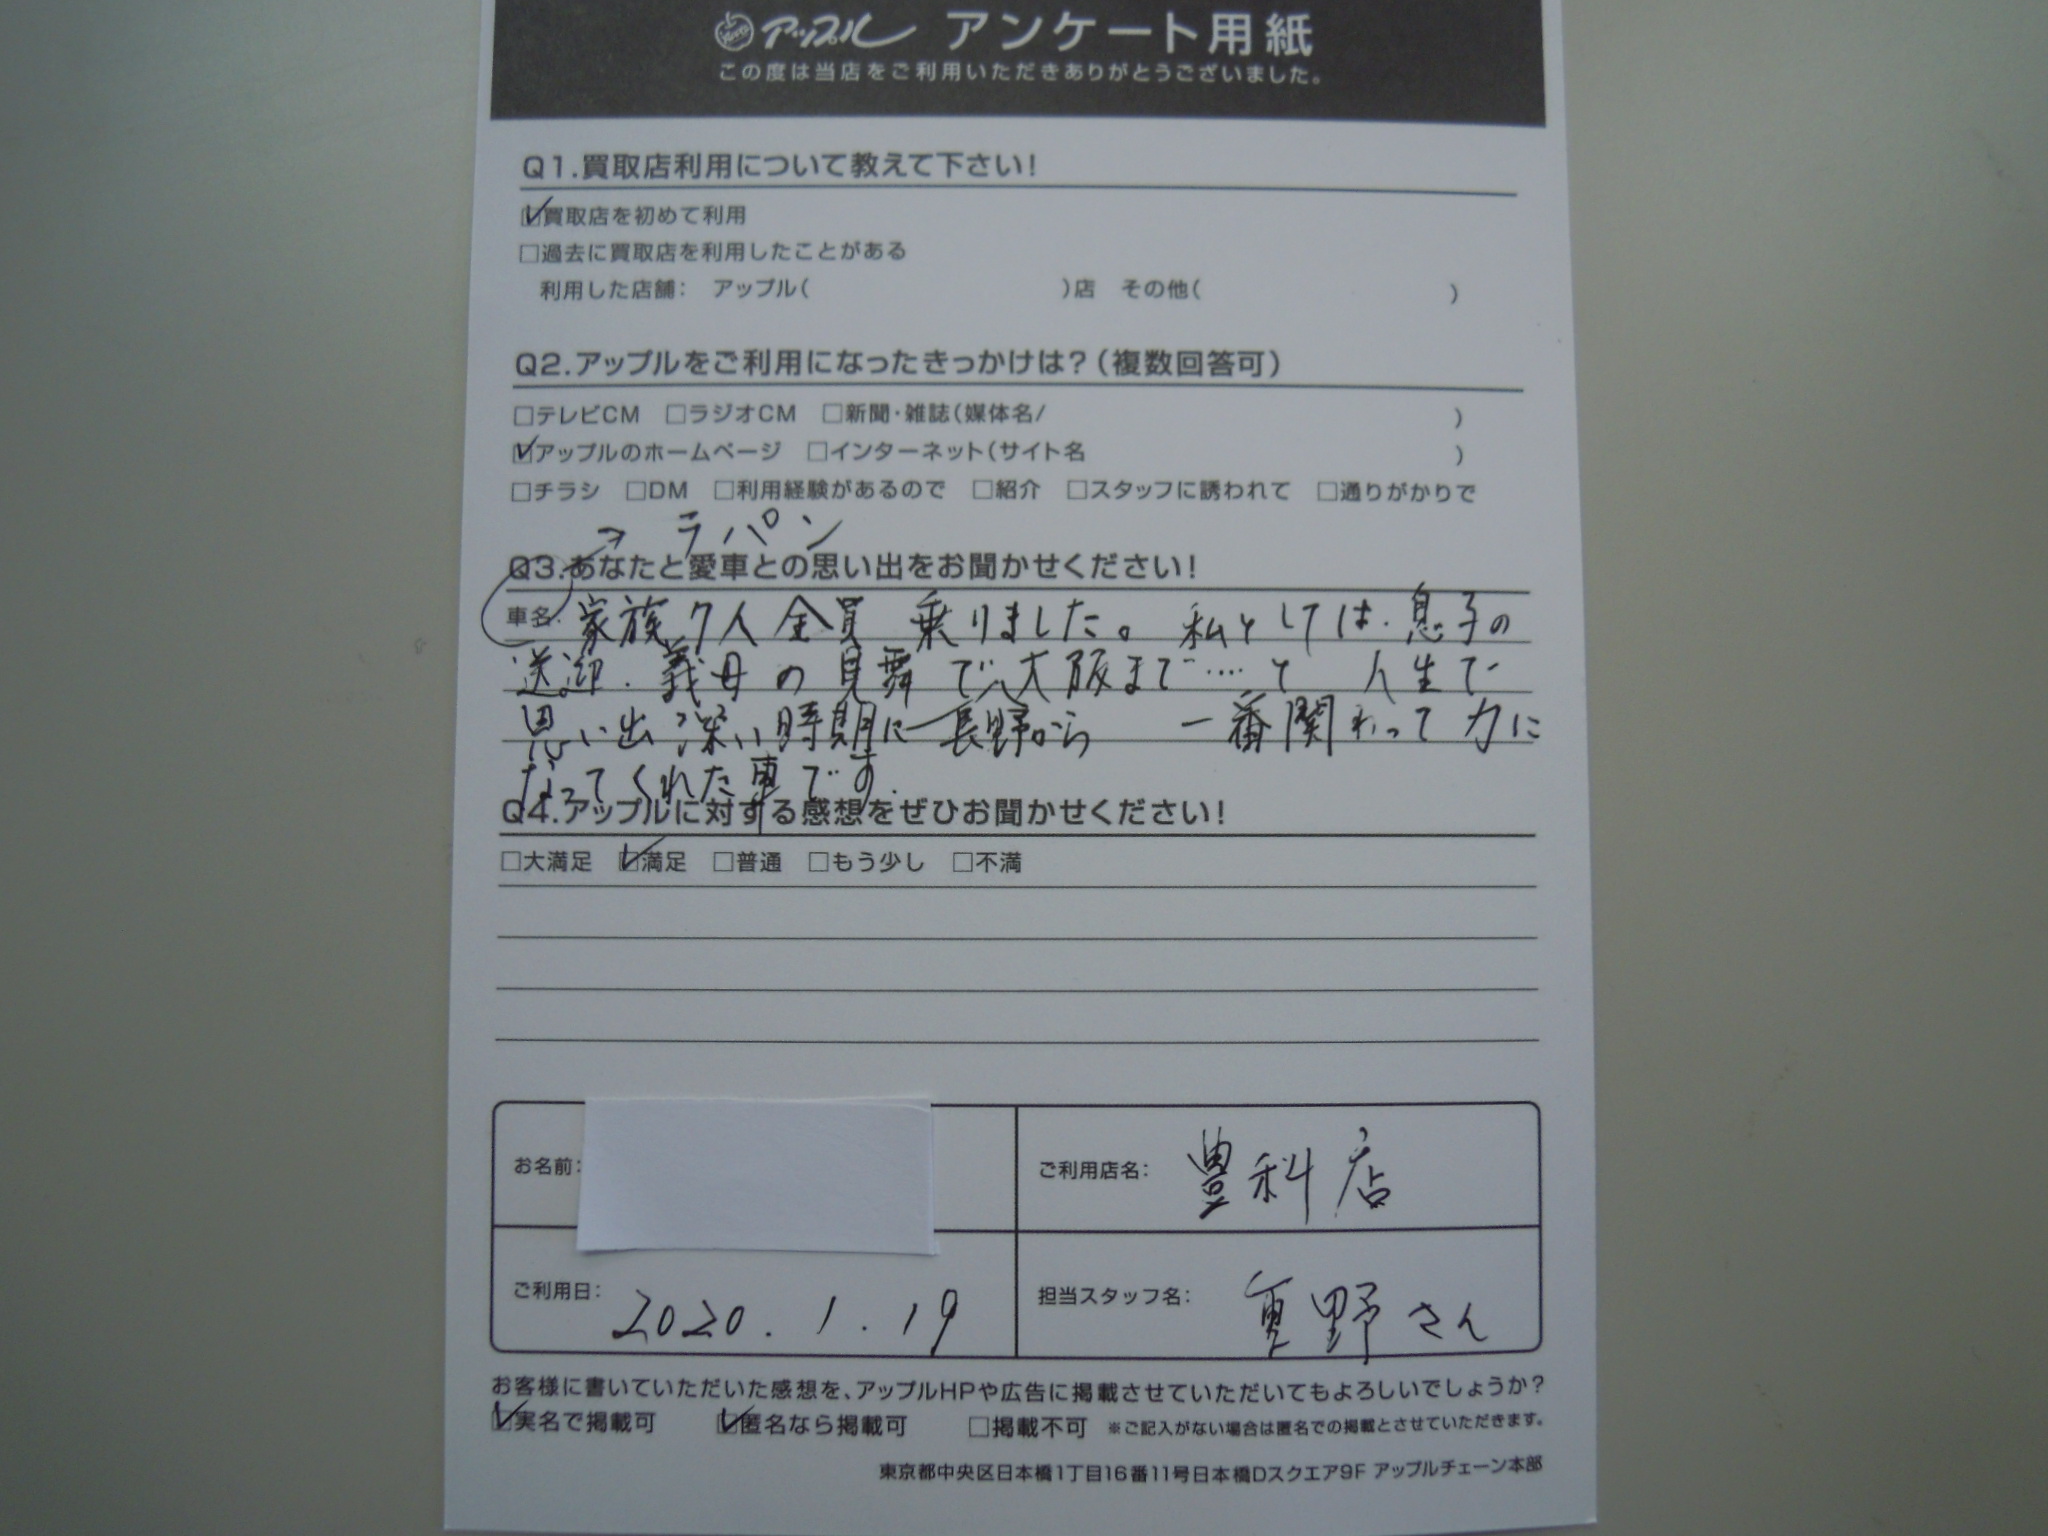 アップル アンケート用紙
この度は当店をご利用いただきありがとうございました。
Q1.買取店利用について教えて下さい!
☑買取店を初めて利用
□過去に買取店を利用したことがある
利用した店舗: アップル( )店 その他( )
Q2.アップルをご利用になったきっかけは?(複数回答可)
□テレビCM □ラジオCM □新聞・雑誌(媒体名/ )
☑アップルのホームページ □インターネット(サイト名 )
□チラシ □DM □利用経験があるので □紹介 □スタッフに誘われて □通りがかりで
→ ラパン
Q3.あなたと愛車との思い出をお聞かせください!
車名: 家族7人全員 乗りました。 私としては、息子の
送迎、義母の見舞で大阪まで……と 人生で
思い出深い時期に 長野から 一番関わって力に
なってくれた車です。
Q4.アップルに対する感想をぜひお聞かせください!
□大満足 ☑満足 □普通 □もう少し □不満
お名前:
ご利用店名: 豊科店
ご利用日: 2020.1.19
担当スタッフ名: 野さん
お客様に書いていただいた感想を、アップルHPや広告に掲載させていただいてもよろしいでしょうか?
☑実名で掲載可 ☑匿名なら掲載可 □掲載不可 ※ご記入がない場合は匿名での掲載とさせていただきます。
東京都中央区日本橋1丁目16番11号日本橋Dスクエア9F アップルチェーン本部